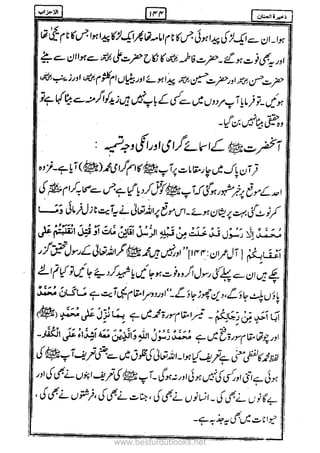 ذخیرۃ الجنان ۱۴۴ الاحزاب
ہوا۔ ان سے ایک لڑکی پیدا ہوئی جس کا نام امامہ تھا پھر ایک لڑکا پیدا ہوا جس کا نام یحییٰ تھا
اور یہ بھی فوت ہو گئے۔ حضرت فاطمہ کا نکاح حضرت علی سے ہوا ان سے بیٹے
حضرت حسن اور حضرت حسین پیدا ہوئے اور بیٹیاں ام کلثوم اور زینب
ہوئیں۔ تو فرمایا آپ مردوں میں سے کسی کے باپ نہیں ہیں زید کو اگر منہ سے بیٹا کہا ہے تو
وہ حقیقی بیٹا نہیں بن گیا۔
آنحضرت ﷺ کے اسمائے گرامی اور انکی وجہ تسمیہ:
قرآن پاک میں چار مقامات پر آپ ﷺ کا اسم گرامی محمد (ﷺ) آیا ہے۔ غزوہ
احد کے موقع پر خبر مشہور ہو گئی کہ آپ ﷺ کو قتل کر دیا گیا ہے جس سے صحابہ کرام کی
کمر ٹوٹ گئی بہت پریشان ہوئے۔ اس موقع پر اللہ تعالیٰ نے یہ آیت نازل فرمائی وَمَا
مُحَمَّدٌ اِلَّا رَسُوْلٌ قَدْ خَلَتْ مِنْ قَبْلِهِ الرُّسُلُ اَفَاِئِنْ مَّاتَ اَوْ قُتِلَ انْقَلَبْتُمْ عَلٰى
اَعْقَابِكُمْ [آل عمران: ۱۴۴] ”اور نہیں ہیں محمد ﷺ مگر اللہ تعالیٰ کے رسول تحقیق گزر
چکے ہیں ان سے پہلے کئی رسول اگر وہ فوت ہو جائیں یا شہید کر دیئے جائیں تو کیا تم الٹے
پاؤں پلٹ جاؤ گے، دین چھوڑ جاؤ گے۔“ اور دوسرا مقام یہی آیت ہے مَا كَانَ مُحَمَّدٌ
اَبَا اَحَدٍ مِّنْ رِّجَالِكُمْ۔ تیسرا مقام سورۃ محمد میں ہے بِمَا نُزِّلَ عَلٰى مُحَمَّدٍ (ﷺ)
اور چوتھا مقام سورۃ فتح میں ہے مُحَمَّدٌ رَّسُوْلُ اللّٰهِ وَالَّذِيْنَ مَعَهٗ اَشِدَّاءُ عَلَى الْكُفَّارِ۔
لفظ محمد کا لفظی معنیٰ ہے تعریف کیا ہوا۔ اللہ تعالیٰ کی مخلوق میں سے جتنی تعریف آپ ﷺ کی
ہوئی ہے اتنی اور کسی کی نہیں ہوئی اور نہ ہوگی۔ آپ ﷺ کی تعریف اپنوں نے بھی کی اور
بے گانوں نے بھی کی۔ انسانوں نے بھی کی، جنات نے بھی کی، فرشتوں نے بھی کی،
حیوانات میں بھی یہ جذبہ ہے۔
www.besturdubooks.net